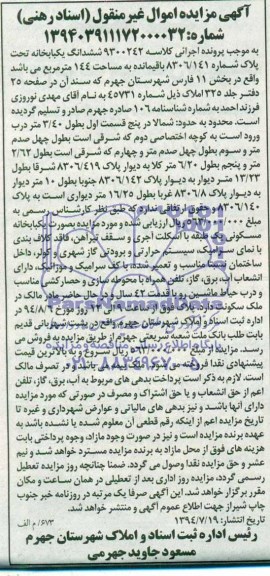 آگهی مزایده اموال غیرمنقول (اسناد رهنی)
شماره: ۱۳۹۴۰۳۹۱۱۱۷۲۰۰۰۰۳۲
به موجب پرونده اجرائی کلاسه ۹۳۰۰۲۴۲ ششدانگ یکبابخانه تحت
پلاک شماره ۸۳۰۶/۱۴۱ باقیمانده به مساحت ۱۴۴ مترمربع می باشد
واقع در بخش ۱۱ فارس شهرستان جهرم که سند آن در صفحه ۲۵
دفتر جلد ۳۲۵ املاک ذیل شماره ۴۵۷۳۱ به نام اقای مهدی نوروزی
فرزند احمد به شماره شناسنامه ۱۰۶ صادره جهرم صادر و تسلیم گردیده
است. محدود به حدود: شمالا در پنج قسمت اول بطول ۳/۴۰ متر درب
ورود است به کوچه اختصاصی دوم که شرقی است بطول چهل صدم
متر و سوم بطول چهل صدم متر و چهارم که شرقی است بطول ۲/۶۳
متر و پنجم بطول ۶/۲۰ متر کلا به دیوار پلاک ۸۳۰۶/۴۱۹ شرقا بطول
۱۳/۲۳ متر دیوار به دیوار پلاک ۸۳۰۶/۱۴۲ جنوبا بطول ۱۰ متر دیوار
به دیوار پلاک ۸۳۰۶/۸ غربا بطول ۱۶/۲۵ متر دیواری است به پلاک
۸۳۰۶/۱۴۰ حقوق ارتفاقی ندارد که طبق نظر کارشناس رسمی به
مبلغ ریال ارزیابی شده و مورد مزایده بصورت یکبابخانه
مسکونی یک طبقه با اسکلت آجری و سقف تیرآهن، فاقد کلاف بندی
با نمای سرامیک سیستم حرارتی و برودتی گاز شهری و کولر، داخل
ساختمان نسبتا مناسب و تعمیر شده با کف سرامیک و موزائیک، دارای
انشعاب آب، برق، گاز، تلفن همراه با محوطه سازی و حصارکشی مناسب
و درب حیاط ماشین رو با قدمت ۴۲ سال و در حال حاضر خود مالک در
ملک سکونت دارد. پلاک فوق از ساعت ۹ الی ۱۲ روز مورخ ۹۴/۸/۹ در
اداره ثبت اسناد و املاک شهرستان جهرم واقع در پشت شهربانی قدیم
بابت طلب بانک ملت شعبه شریعتی جهرم از طریق مزایده به فروش می
رسد. مزایده از مبلغ ریال شروع و به بالاترین قیمت
پیشنهادی نقدا فروخته می شود و ملک مورد مزایده در تصرف مالک
است. لازم به ذکر است پرداخت بدهی های مربوط به آب، برق، گاز، تلفن
اعم از حق انشعاب و یا حق اشتراک و مصرف در صورتی که مورد مزایده
دارای آنها باشد و نیز بدهی های مالیاتی و عوارض شهرداری و غیره تا
تاریخ مزایده اعم از اینکه رقم قطعی آن معلوم شده یا نشده باشد به
عهده برنده مزایده است و نیز در صورت وجود مازاد، وجوه پرداختی بابت
هزینه های فوق از محل مازاد به برنده مزایده مسترد خواهد شد و نیم
عشر و حق مزایده نقدا وصول می گردد. ضمنا چنانچه روز مزایده تعطیل
رسمی گردد، مزایده روز اداری بعد از تعطیلی در همان ساعت و مکان
مقرر برگزار خواهد شد. این آگهی صرفا یک مرتبه در روزنامه خبر جنوب
چاپ شیراز جهت اطلاع عموم آگهی و منتشر خواهد شد.
تاریخ انتشار: ۱۳۹۴/۷/۱۹ /۶۷۳ م الف
رئیس اداره ثبت اسناد و املاک شهرستان جهرم
مسعود جاوید جهرمی